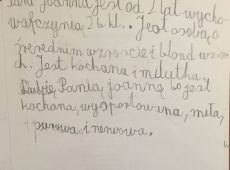 Pani Joanna jest od 2 lat wycho-
wawczynią 2b kl.. Jest osobą o
średnim wzroście i blond włosa-
ch. Jest kochana i milutka.
Lubię Panią Joannę bo jest
kochana, wysportowana, miła,
i nerwowa.